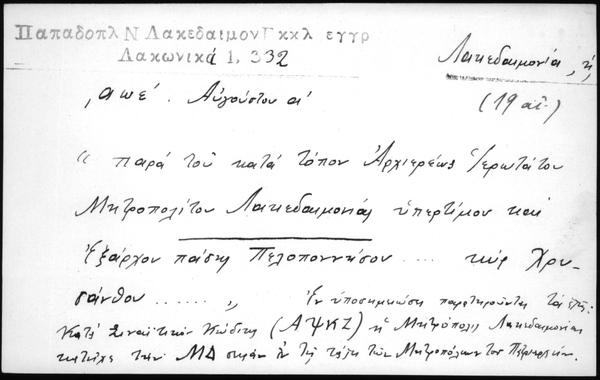 Παπαδοπλ Ν Λακεδαιμον Γ κκλ εγγρ
Λακωνικά 1, 332
Λακεδαιμονία, ἡ
͵αωε΄. Αὐγούστου α΄
(19 αἰ.)
" παρά τοῦ κατά τόπον Ἀρχιερέως Ἱερωτάτου
Μητροπολίτου Λακεδαιμονίας ὑπερτίμου καί
Ἐξάρχου πάσης Πελοποννήσου .... κύρ Χρυ-
σάνθου ...... „ Ἐν ὑποσημειώσει παρατηροῦνται τά ἑξῆς:
Κατά Σιναϊτικόν Κώδικα (ΑΨΚΖ) ἡ Μητρόπολις Λακεδαιμονίας
κατεῖχε τήν ΜΔ σειράν ἐν τῇ τάξει τῶν Μητροπόλεων τοῦ